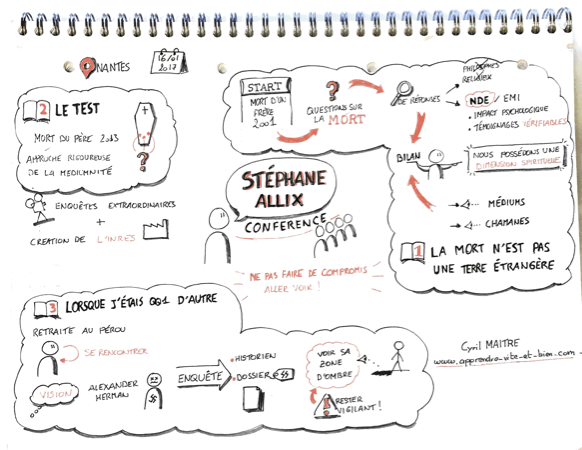 NANTES
16/01
2017
2 LE TEST
MORT DU PÈRE 2013
APPROCHE RIGOUREUSE
DE LA MEDIUMNITÉ
?
ENQUÊTES EXTRAORDINAIRES
+
CREATION DE LIVRES
START
MORT D'UN
FRÈRE
2001
?
QUESTIONS SUR
LA MORT
DE RÉPONSES
PHILOSOPHES
RELIGIEUX
NDE / EMI
• IMPACT PSYCHOLOGIQUE
• TÉMOIGNAGES VÉRIFIABLES
BILAN
NOUS POSSÉDONS UNE
DIMENSION SPIRITUELLE
MÉDIUMS
CHAMANES
1 LA MORT N'EST PAS
UNE TERRE ÉTRANGÈRE
STÉPHANE
ALLIX
CONFERENCE
NE PAS FAIRE DE COMPROMIS
ALLER VOIR !
3 LORSQUE J'ÉTAIS QQ1 D'AUTRE
RETRAITE AU PÉROU
SE RENCONTRER
VISION
ALEXANDER
HERMAN
ENQUÊTE
• HISTORIEN
• DOSSIER
VOIR SA
ZONE
D'OMBRE
! RESTER
VIGILANT !
Cyril MAITRE
www.apprendre-vite-et-bien.com